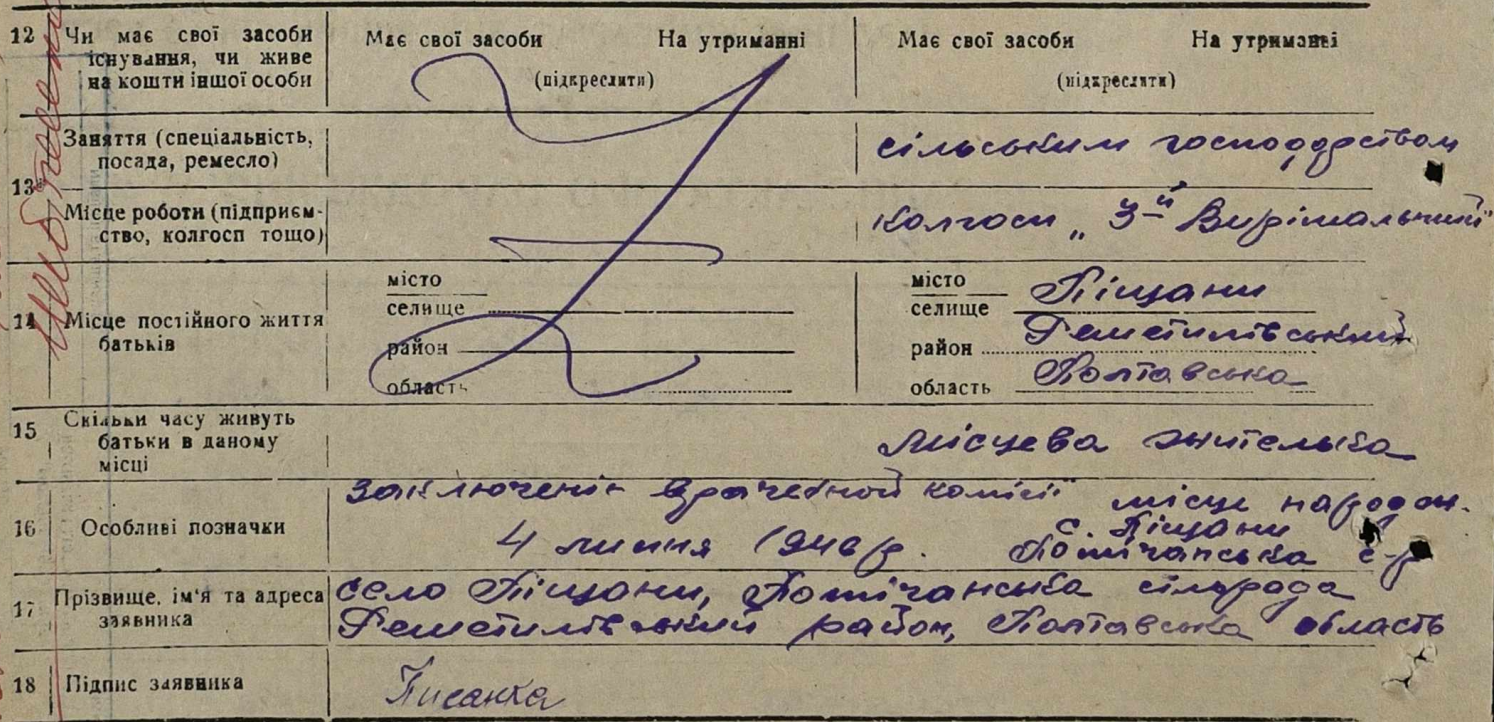 12 Чи має свої засоби існування, чи живе на кошти іншої особи
Має свої засоби На утриманні
(підкреслити)
Має свої засоби На утриманні
(підкреслити)
13
Заняття (спеціальність, посада, ремесло)
сільським господарством
Місце роботи (підприєм-
ство, колгосп тощо)
колгосп „3-й Вирішальний"
14 Місце постійного життя батьків
місто
селище
район
область
місто
селище Піщани
район Решетилівський
область Полтавська
15 Скільки часу живуть батьки в даному місці
місцева жителька
16 Особливі позначки
заключеня врачебной комісії місце народж.
с. Піщани
4 липня 1946 р. с-р
17 Прізвище, ім'я та адреса заявника
село Піщани, сільрада
Решетилівський район, Полтавська область
18 Підпис заявника
Писанка